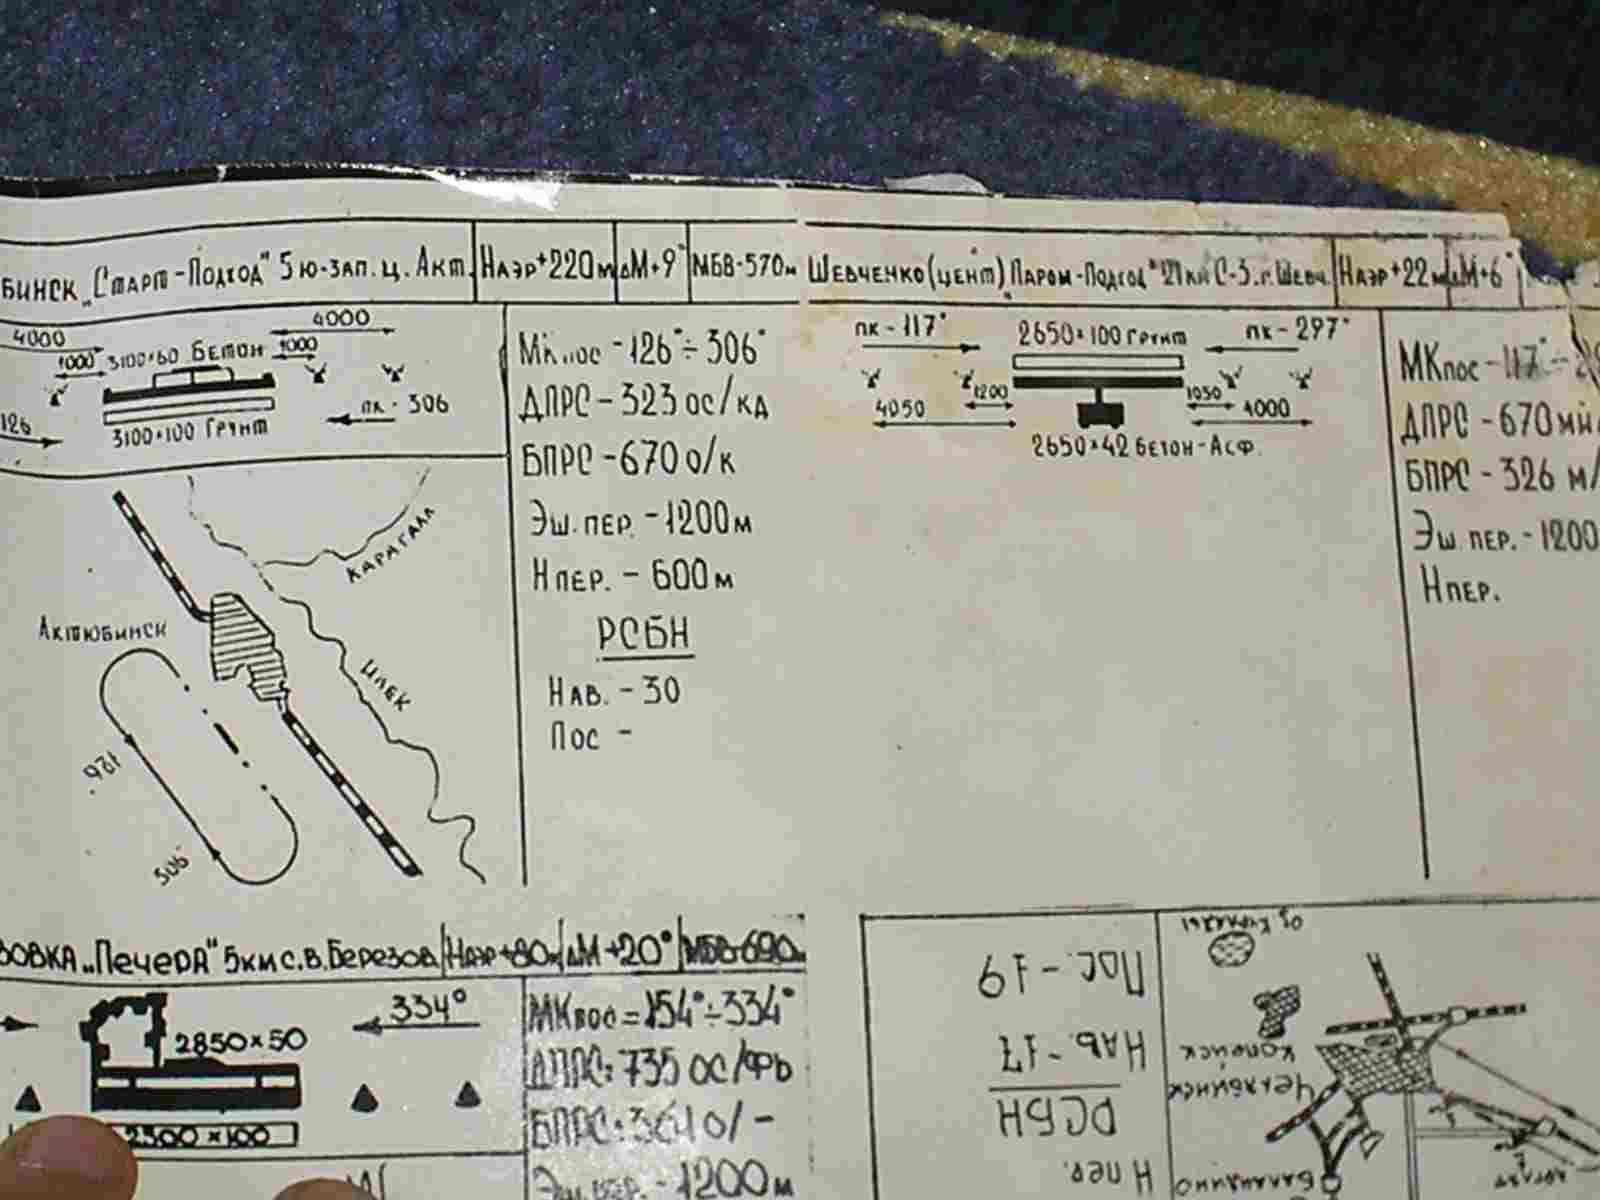 БИНСК „Старт-Подход" 5 ю-зап. ц. Акт. Наэр+220м ΔМ+9° МБВ-570м
4000 4000
1000 3100×60 БЕТОН 1000
126 пк-306
3100×100 Грунт
МКпос-126°÷306°
ДПРС-323 ос/кд
БПРС-670 о/к
Эш. пер.-1200м
Н пер.-600м
РСБН
Нав.-30
Пос-
Карагалл
Актюбинск
Илек
126
306
Шевченко (цент) „Паром-Подход" 21 км С-З. г. Шевч. Наэр+22м ΔМ+6°
пк-117° 2650×100 Грунт пк-297°
1200 1050
4050 4000
2650×42 бетон-Асф.
МКпос-117°÷
ДПРС-670
БПРС-326 м/
Эш. пер.-1200
Н пер.
ЗОВКА „Печера" 5км с.в. Березов Наэр+80м ΔМ+20° МБВ-690м
334°
2850×50
2500×100
МКпос=154°÷334°
ДПРС:735 ос/фь
БПРС:364 о/-
Эш. пер.-1200м
Пос.-19
Нав.-17
РСБН
Н пер.
Копейск
Челябинск
Баландино